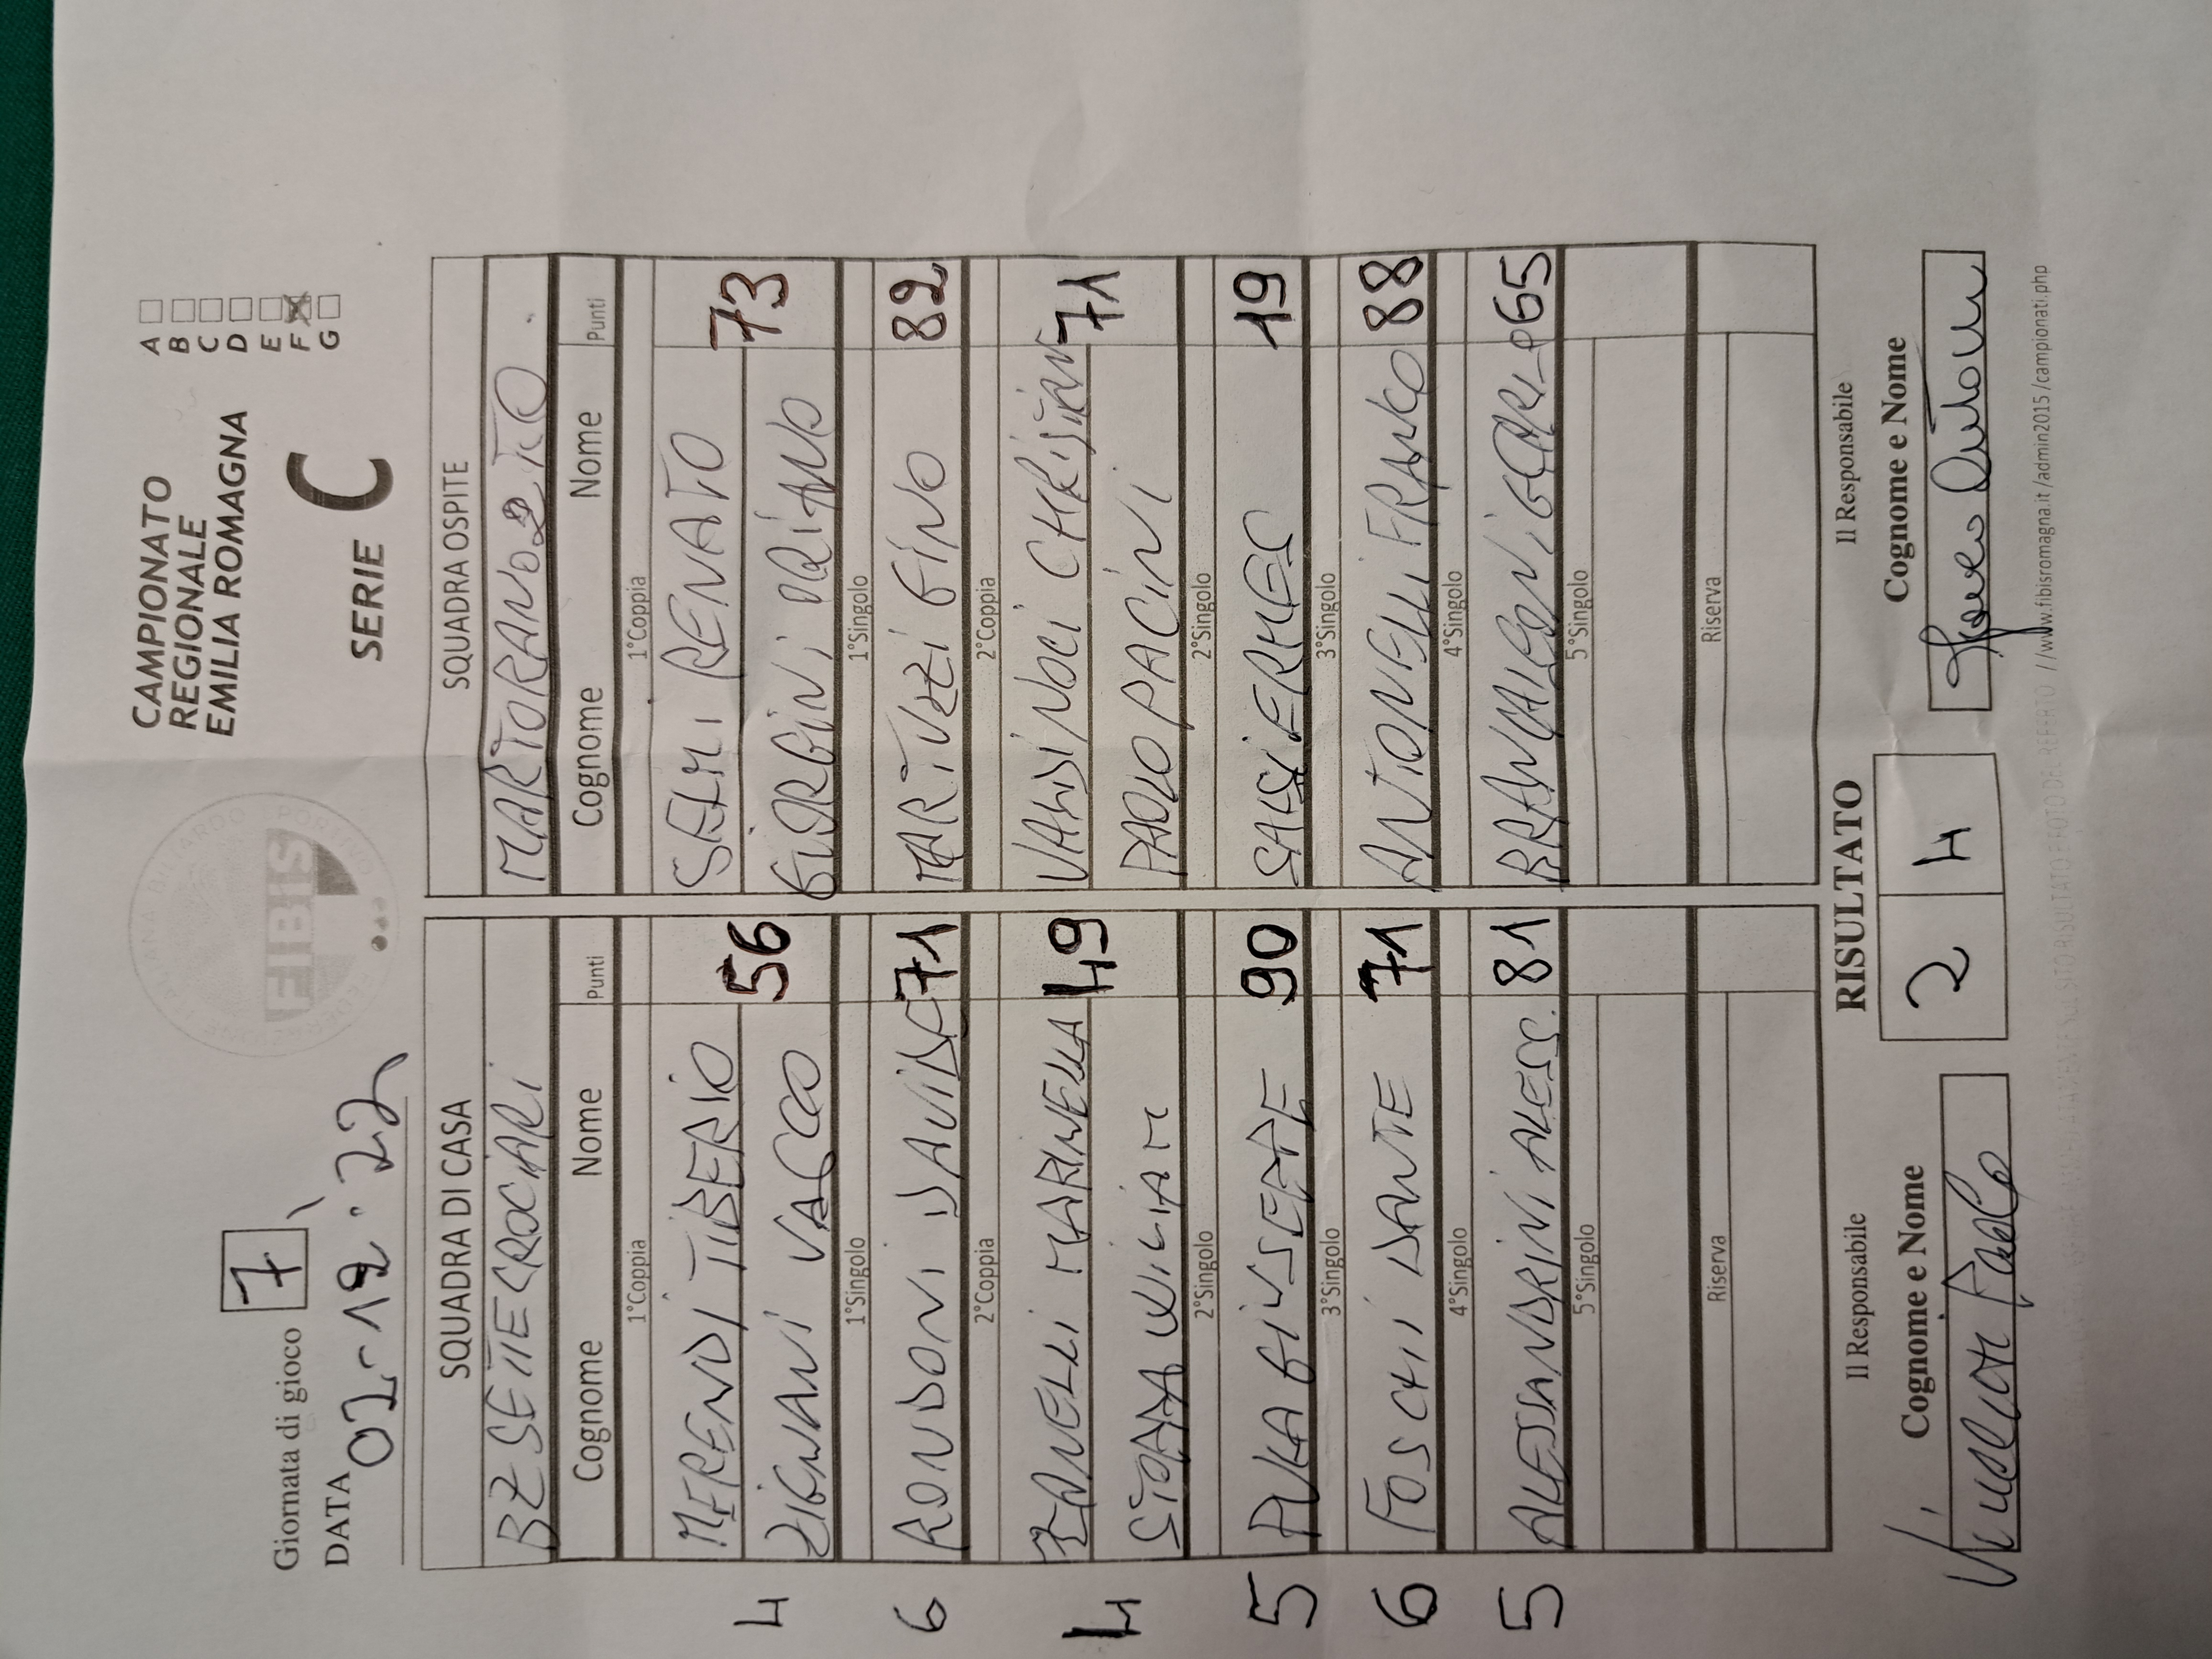 Giornata di gioco 7
DATA 02-12-22
CAMPIONATO
REGIONALE
EMILIA ROMAGNA
SERIE C
A
B
C
D
E
F X
G
FIBIS
SQUADRA DI CASA
BZ SETTECROCIARI
Cognome Nome Punti
1°Coppia
4 MERENDI TIBERIO 56
ZIGNANI VASCO
1°Singolo
6 RONDONI DAVIDE 71
2°Coppia
4 ZANELLI MARINELLA 49
WILLIAM
2°Singolo
5 GIUSEPPE 90
3°Singolo
6 FOSCHI DANTE 71
4°Singolo
5 ALESSANDRINI ALESS. 81
5°Singolo
Riserva
SQUADRA OSPITE
MARTORANO 2 TTO
Cognome Nome Punti
1°Coppia
SELMI RENATO 73
GIORGINI ORIANO
1°Singolo
MARTUZZI GINO 82
2°Coppia
VALDINOCI CHRISTIAN 71
PAOLO PACINI
2°Singolo
SALSI ERMES 19
3°Singolo
ANTONELLI FRANCO 88
4°Singolo
BRANCALEONI GCARLO 65
5°Singolo
Riserva
Il Responsabile
Cognome e Nome
RISULTATO
2 4
Il Responsabile
Cognome e Nome
//www.fibisromagna.it /admin2015 /campionati.php